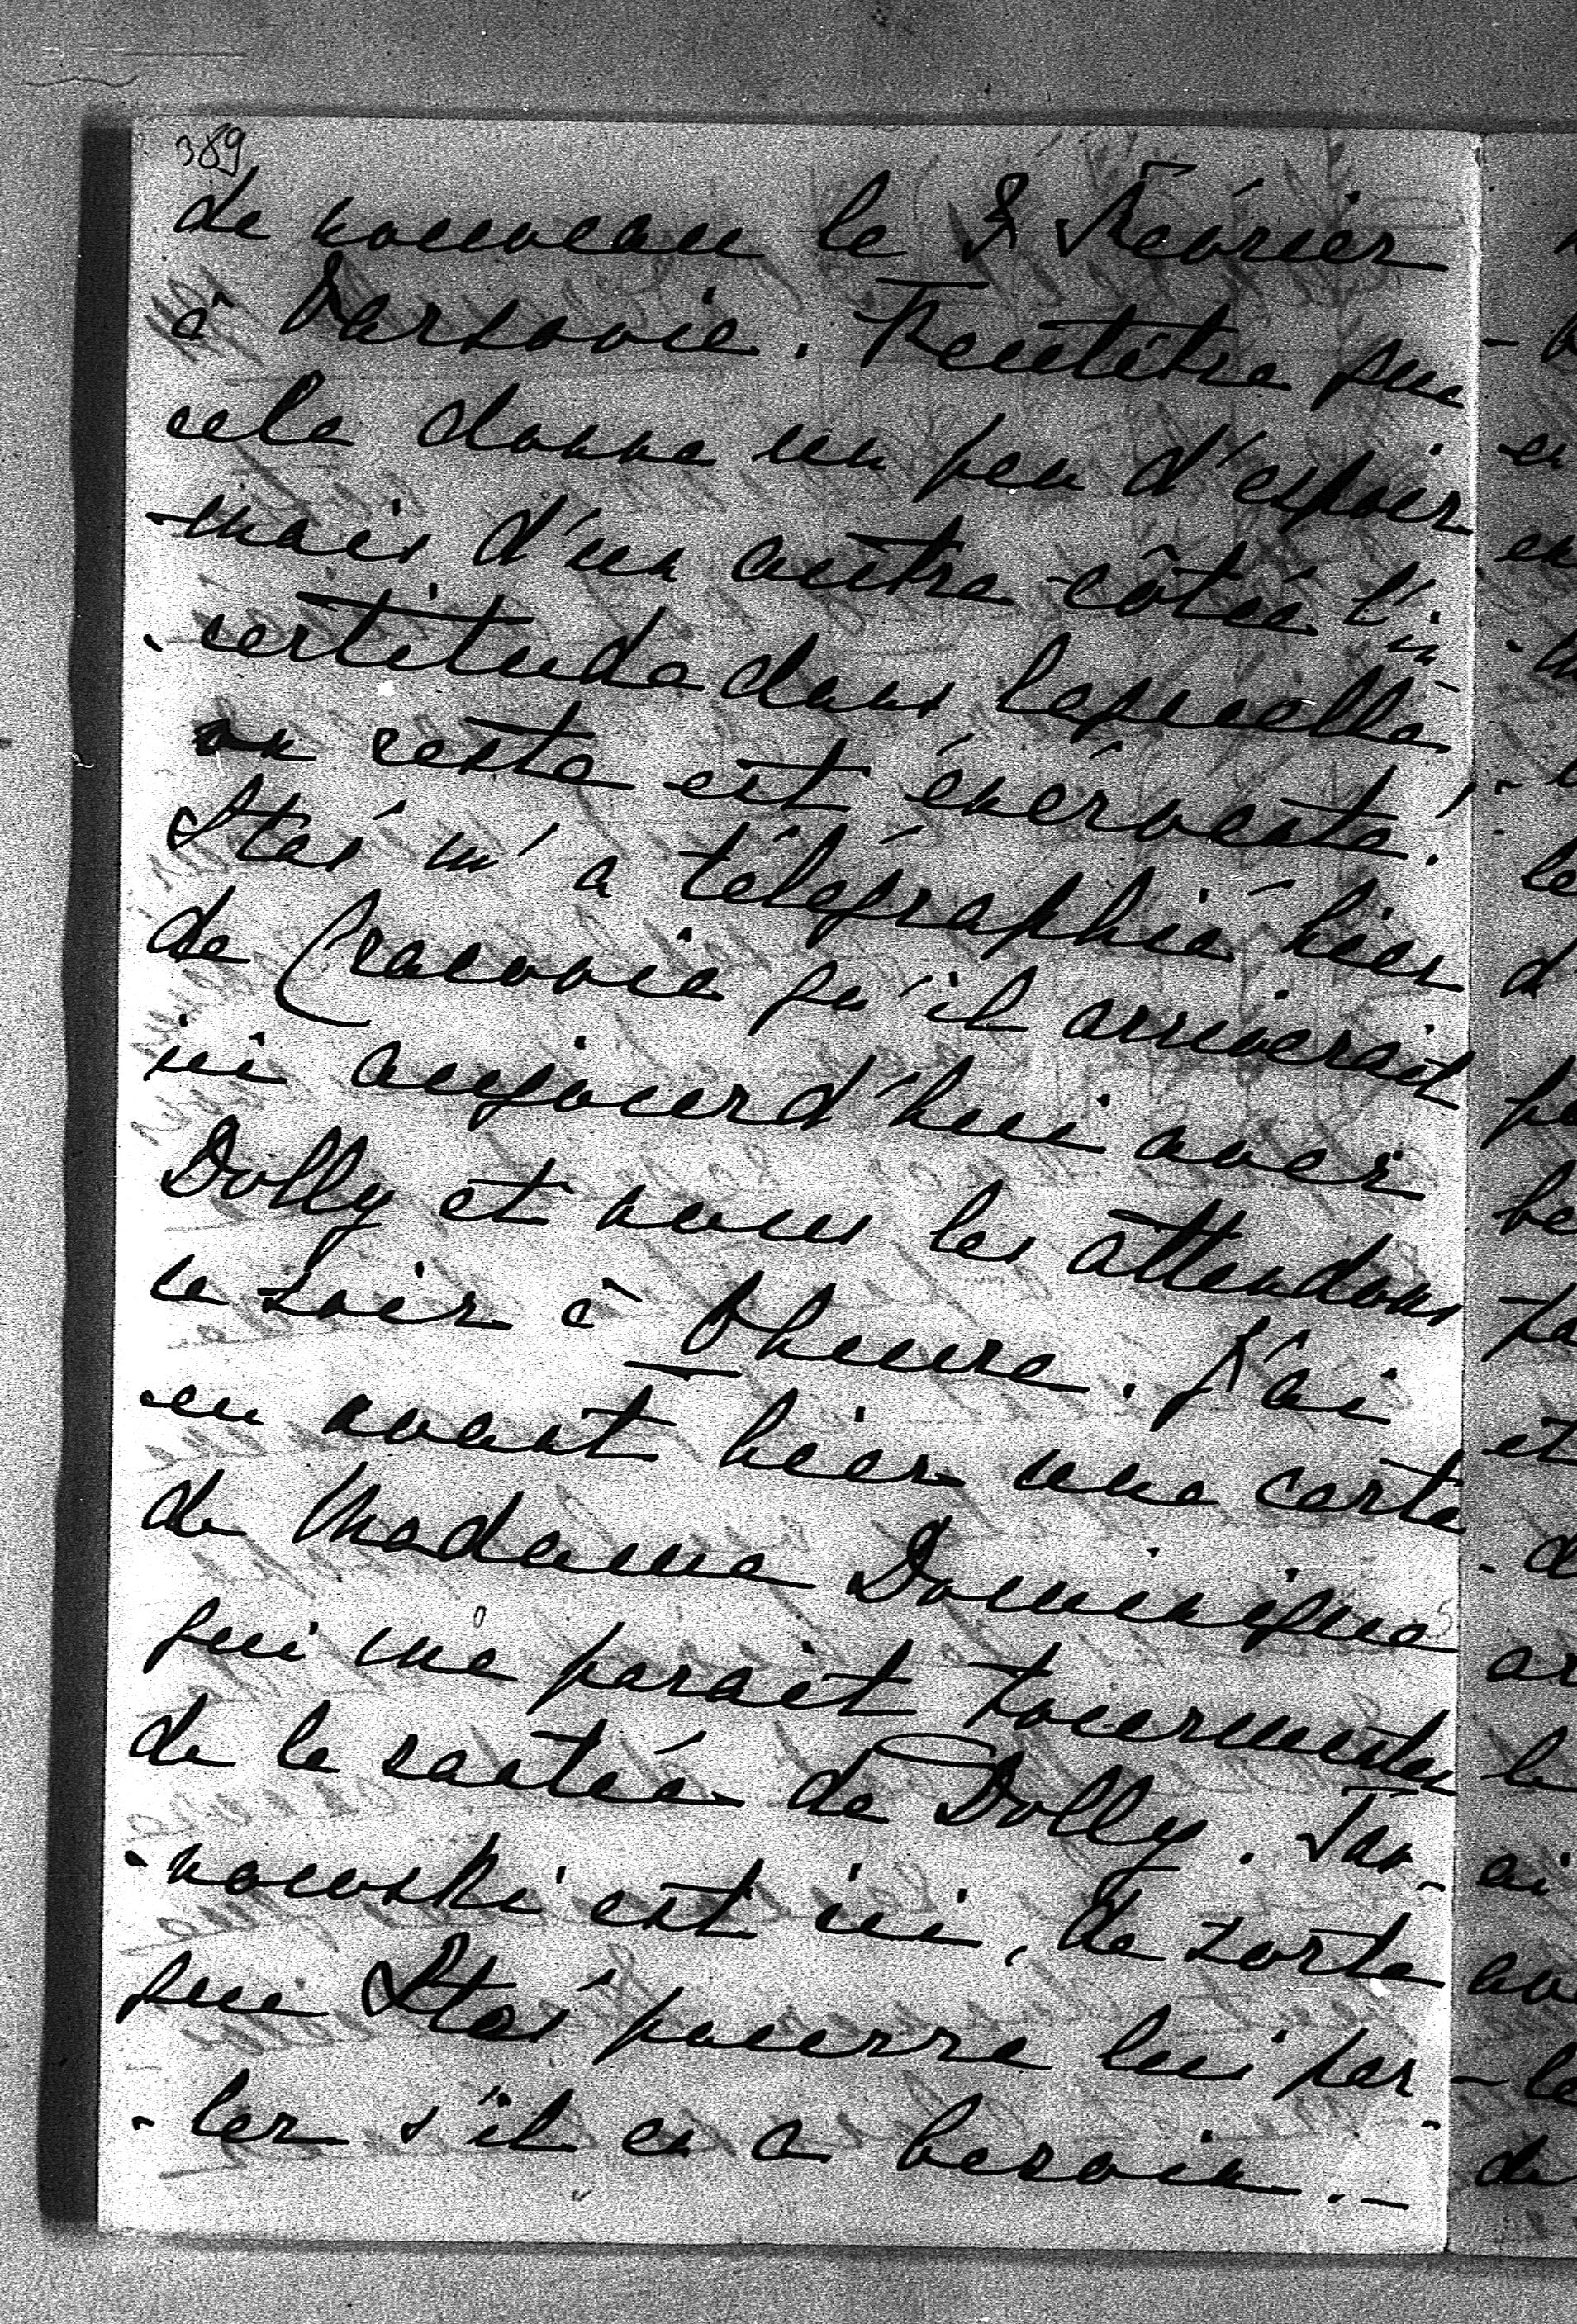 389
de nouveau le 8 Fevrier
à Varsovie. Peutêtre que
cela donne un peu d'espoir
mais d'un autre côtée l'in-
-certitude dans laquelle
on reste est énérvente!
Stas' m'a télégraphié hier
de Cracovie qu'il arriverait
ici aujourd'hui avec
Dolly et nous les attendons
ce soir à heure. J'ai
eu avant hier une carte
de Madame Dominique
qui me parait tourmentée
de la santée de Dolly. Tar-
-nowski est ici, de sorte
que Stas' pourra lui par-
-ler s'il en a besoin. –